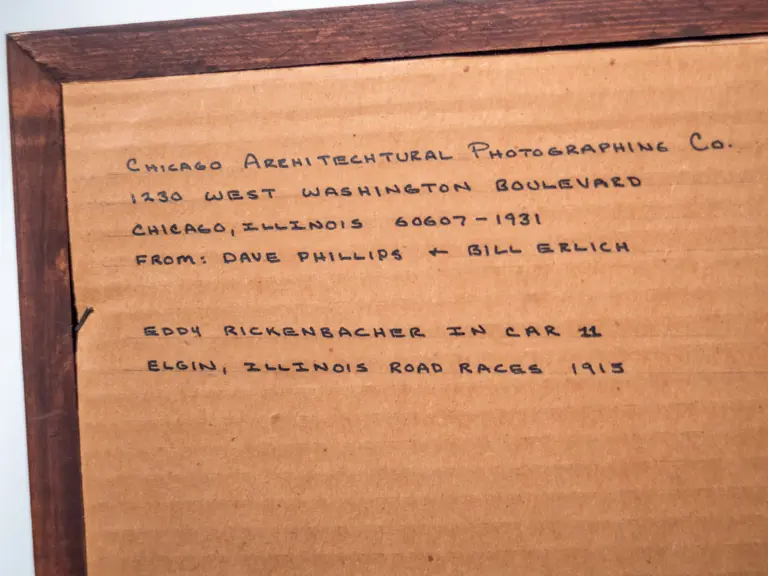 CHICAGO ARCHITECHTURAL PHOTOGRAPHING CO.
1230 WEST WASHINGTON BOULEVARD
CHICAGO, ILLINOIS 60607-1931
FROM: DAVE PHILLIPS + BILL ERLICH
EDDY RICKENBACHER IN CAR 11
ELGIN, ILLINOIS ROAD RACES 1915